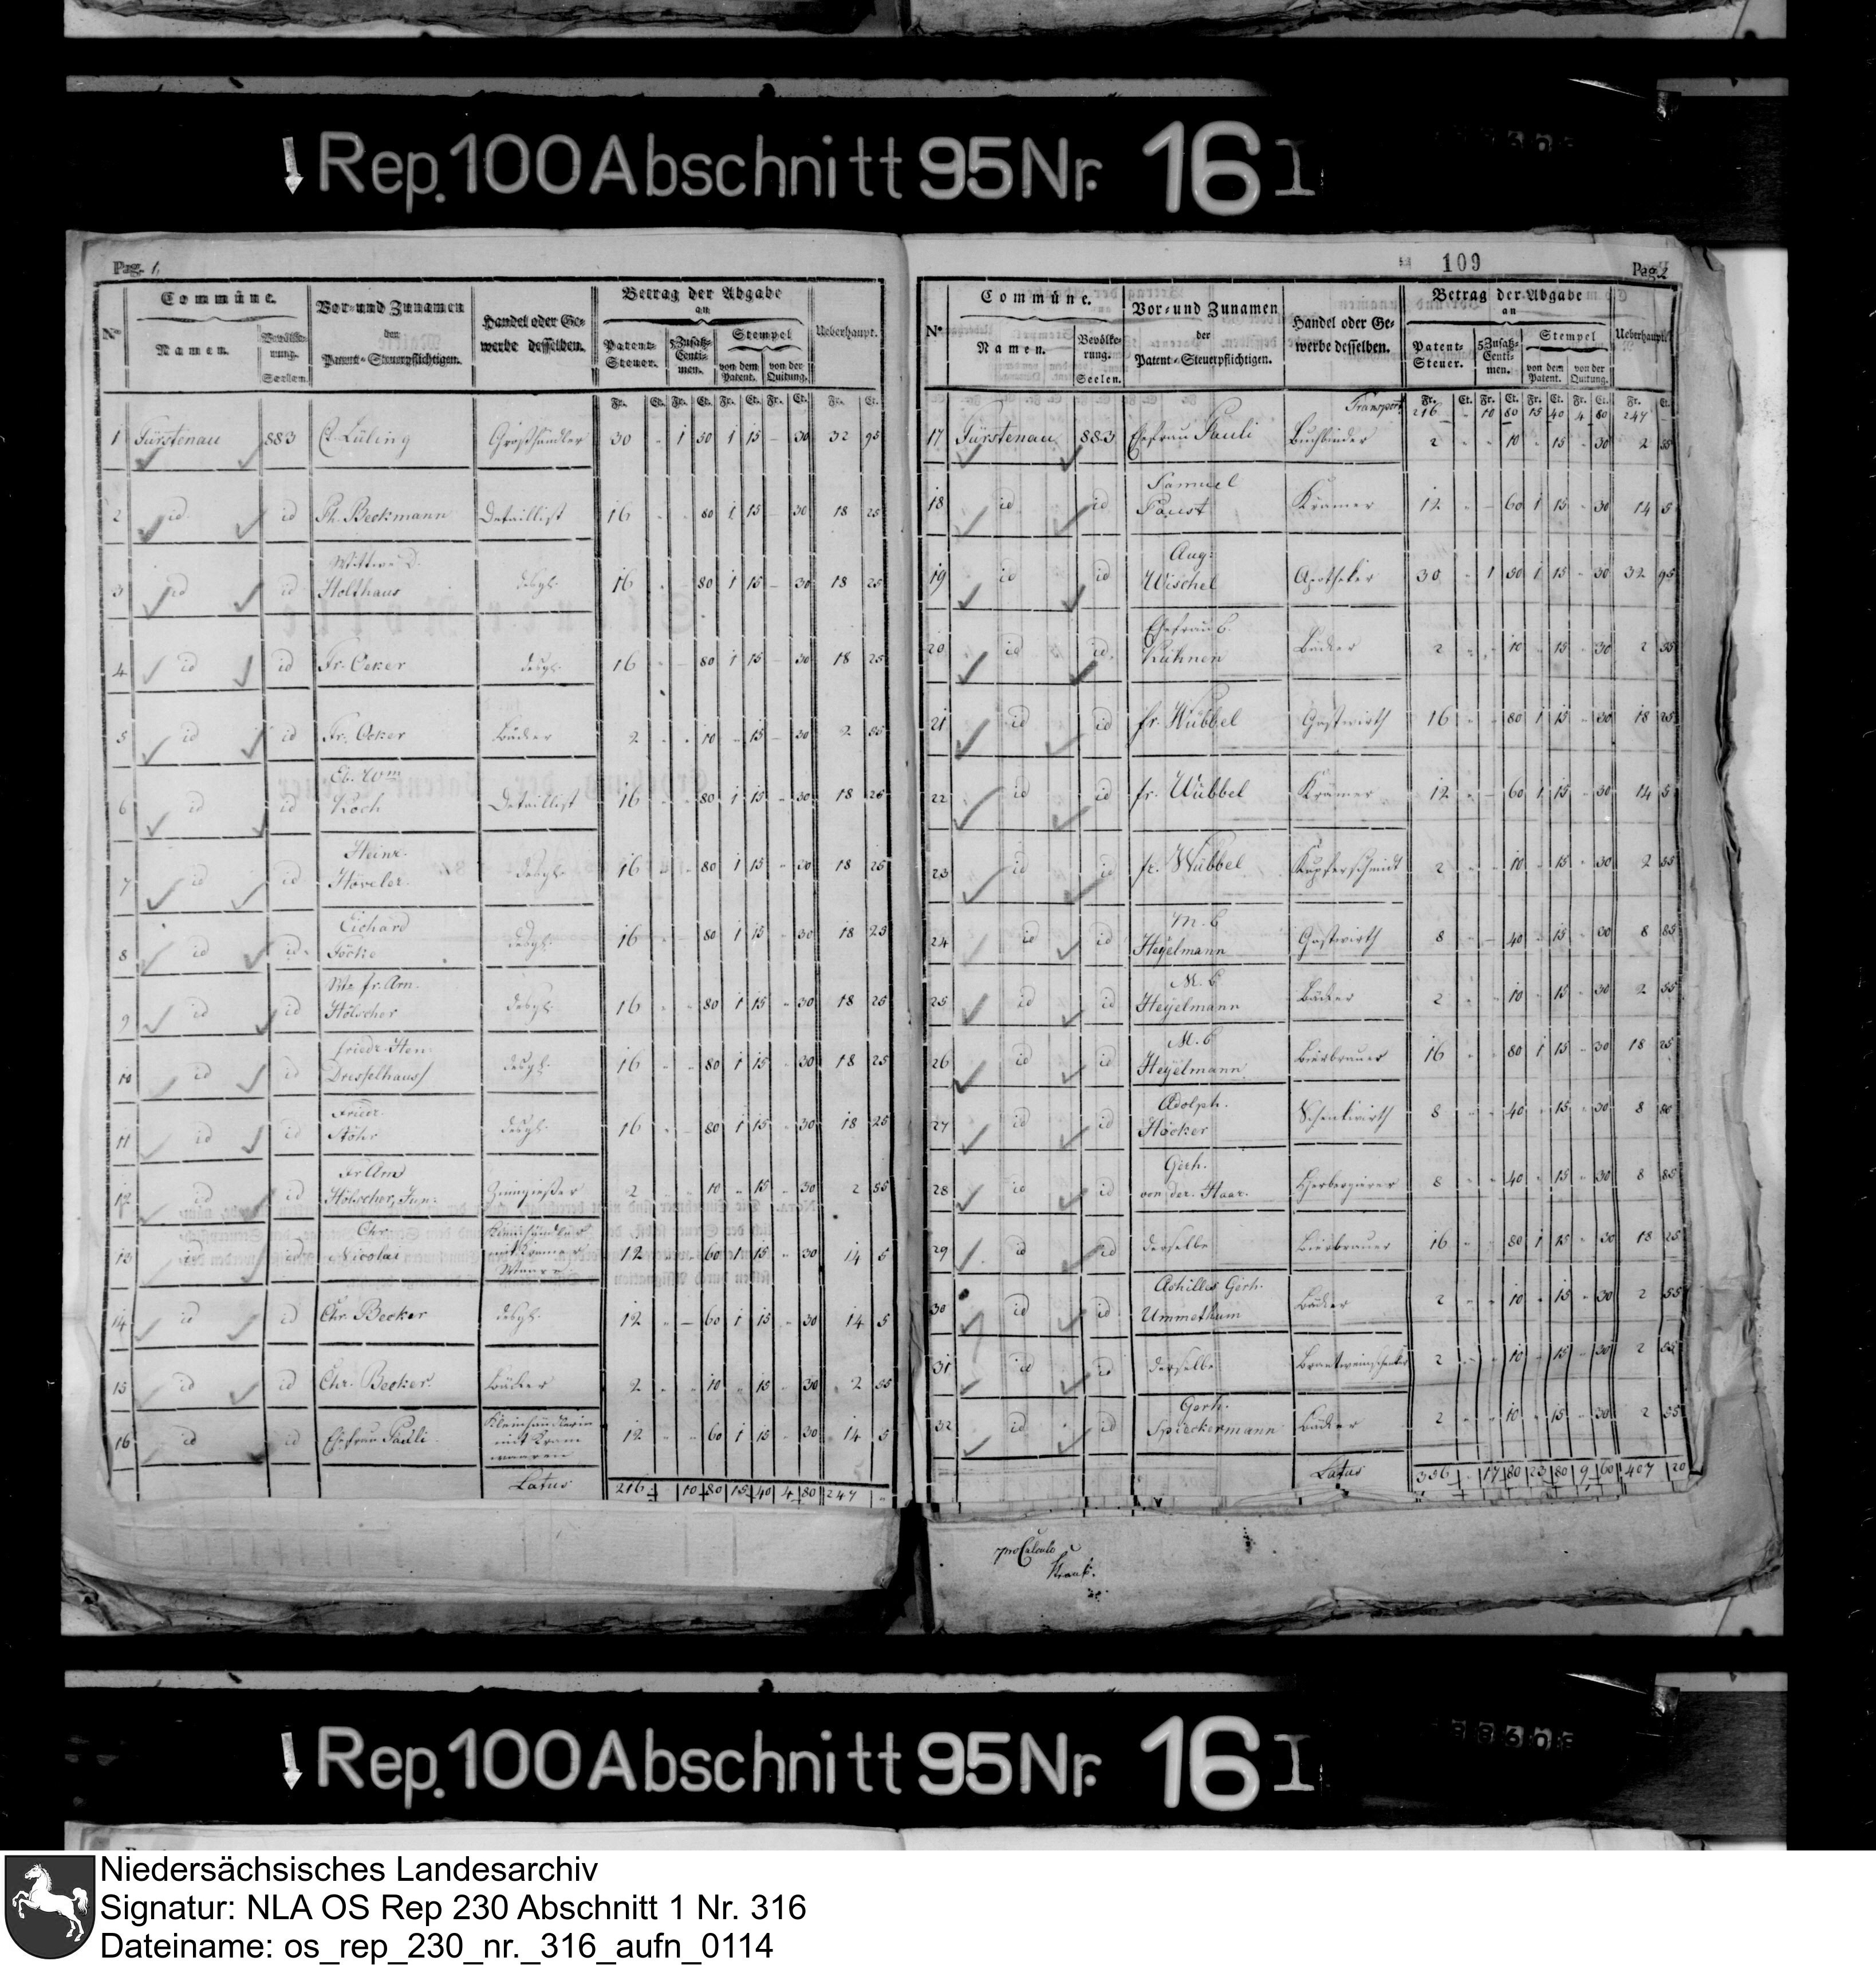 Rep. 100 Abschnitt 95 Nr. 16 I
Pag. 1.
Nro
Commüne.
Namen.
Bevölke-
rung.
Seelen.
Vor- und Zunamen
der
Patent-Steuerpflichtigen.
Handel oder Ge-
werbe desselben.
Betrag der Abgabe
an
Patent-
Steuer.
5 Zusatz-
Centi-
men.
Stempel
von dem
Patent.
von der
Quitung.
Ueberhaupt.
Fr. Ct. Fr. Ct. Fr. Ct. Fr. Ct. Fr. Ct.
1 Fürstenau 883 C. Lüling Großhändler 30 " 1 50 1 15 - 30 32 95
2 id id Ph. Beckmann Detaillist 16 - - 80 1 15 - 30 18 25
3 id id Wittwe D.
Holthaus desgl. 16 - - 80 1 15 - 30 18 25
4 id id Fr. Oeker desgl. 16 - - 80 1 15 - 30 18 25
5 id id Fr. Oeker Bäcker 2 " " 10 " 15 - 30 2 55
6 id id Eb. Wm
Koch Detaillist 16 " " 80 1 15 " 30 18 25
7 id id Heinr.
Höveler desgl. 16 " " 80 1 15 " 30 18 25
8 id id
desgl. 16 " " 80 1 15 " 30 18 25
9 id id Wte fr. Arn.
Hölscher desgl. 16 " " 80 1 15 " 30 18 25
10 id id friedr. Hen.
Dresselhauss desgl. 16 " " 80 1 15 " 30 18 25
11 id id Friedr.
Stöhr desgl. 16 " - 80 1 15 " 30 18 25
12 id id Fr Arnd
Hölscher, Jun: Zinngießer 2 10 " 15 " 30 2 55
13 id id Chr.
Nicolai Kleinhändler
mit Kramer
Waare 12 " " 60 1 15 " 30 14 5
14 id id Chr. Becker desgl. 12 " - 60 1 15 " 30 14 5
15 id id Chr. Becker Bäcker 2 " " 10 " 15 " 30 2 55
16 id id Ehefrau Pauli Kleinhändlerin
mit Kram
waaren 12 " " 60 1 15 " 30 14 5
Latus 216 - 10 80 15 40 4 80 247 "
109
Pag. 2
No
Commüne.
Namen.
Bevölke-
rung.
Seelen.
Vor- und Zunamen
der
Patent-Steuerpflichtigen.
Handel oder Ge-
werbe desselben.
Betrag der Abgabe
an
Patent-
Steuer.
5 Zusatz-
Centi-
men.
Stempel
von dem
Patent.
von der
Quitung.
Ueberhaupt.
Fr. Ct. Fr. Ct. Fr. Ct. Fr. Ct. Fr. Ct.
Transport 216 - 10 80 15 40 4 80 247
17 Fürstenau 883 Ehefrau Pauli Buchbinder 2 " " 10 " 15 " 30 2 55
18 id id Samuel
Faust Krämer 12 " - 60 1 15 " 30 14 5
19 id id Aug:
Wischel Apotheker 30 " 1 50 1 15 " 30 32 95
20 id id Ehefrau C.
Kühnen Bäcker 2 " " 10 " 15 " 30 2 55
21 id id fr. Wübbel Gastwirth 16 " " 80 1 15 " 30 18 25
22 id id fr. Wübbel Krämer 12 " - 60 1 15 " 30 14 5
23 id id fr. Wübbel Kupferschmidt 2 " " 10 " 15 " 30 2 55
24 id id M. C
Heyelmann Gastwirth 8 " - 40 " 15 " 30 8 85
25 id id M. C
Heyelmann Bäcker 2 " " 10 " 15 " 30 2 55
26 id id M. C
Heyelmann Bierbrauer 16 " " 80 1 15 " 30 18 25
27 id id Adolph.
Höcker Schenkwirth 8 " " 40 " 15 " 30 8 85
28 id id Gerh.
von der Haar. Herbergierer 8 " " 40 " 15 " 30 8 85
29 id id derselbe Bierbrauer 16 " " 80 1 15 " 30 18 25
30 id id Achilles Gerh.
Ummethum Bäcker 2 " " 10 " 15 " 30 2 55
31 id id derselbe Brantweinschenker 2 " " 10 " 15 " 30 2 55
32 id id Gerh.
Spieckermann Bäcker 2 " " 10 " 15 " 30 2 55
Latus 356 " 17 80 23 80 9 60 407 20
pro Calculo
Rep. 100 Abschnitt 95 Nr. 16 I
Niedersächsisches Landesarchiv
Signatur: NLA OS Rep 230 Abschnitt 1 Nr. 316
Dateiname: os_rep_230_nr._316_aufn_0114